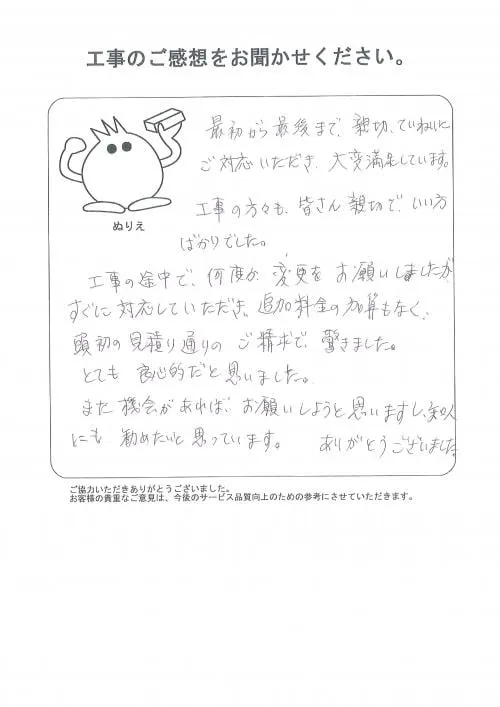 工事のご感想をお聞かせください。
最初から最後まで、親切、ていねいに
ご対応いただき、大変満足しています。
工事の方々も、皆さん親切で、いい方
ばかりでした。
ぬりえ
工事の途中で、何度か変更をお願いしましたが、
すぐに対応していただき、追加料金の加算もなく、
頭初の見積り通りのご精求で、驚きました。
とても良心的だと思いました。
また機会があれば、お願いしようと思いますし、知人
にも勧めたいと思っています。 ありがとうございました。
ご協力いただきありがとうございました。
お客様の貴重なご意見は、今後のサービス品質向上のための参考にさせていただきます。